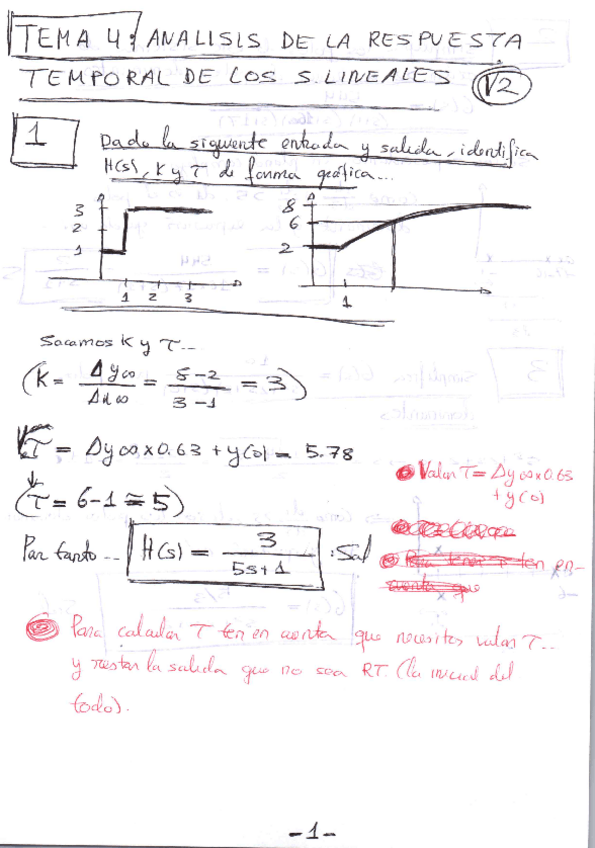 TEMA 4: ANALISIS DE LA RESPUESTA
TEMPORAL DE LOS S. LINEALES V2
1 Dado la siguiente entrada y salida, identifica
H(s), K y T de forma gráfica...
3
2
1
1 2 3
8
6
2
1
Sacamos K y τ...
(K = Δy∞ / Δu∞ = 8-2 / 3-1 = 3)
τ = Δy∞ x 0.63 + y(0) = 5.78
(τ = 6-1 ≅ 5)
Valor τ = Δy∞ x 0.63
+ y(0)
Por tanto... H(s) = 3 / 5s+1 : Sal
Para calcular τ ten en cuenta que necesitas valor τ...
y restar la salida que no sea RT. (la inicial del
todo).
-1-